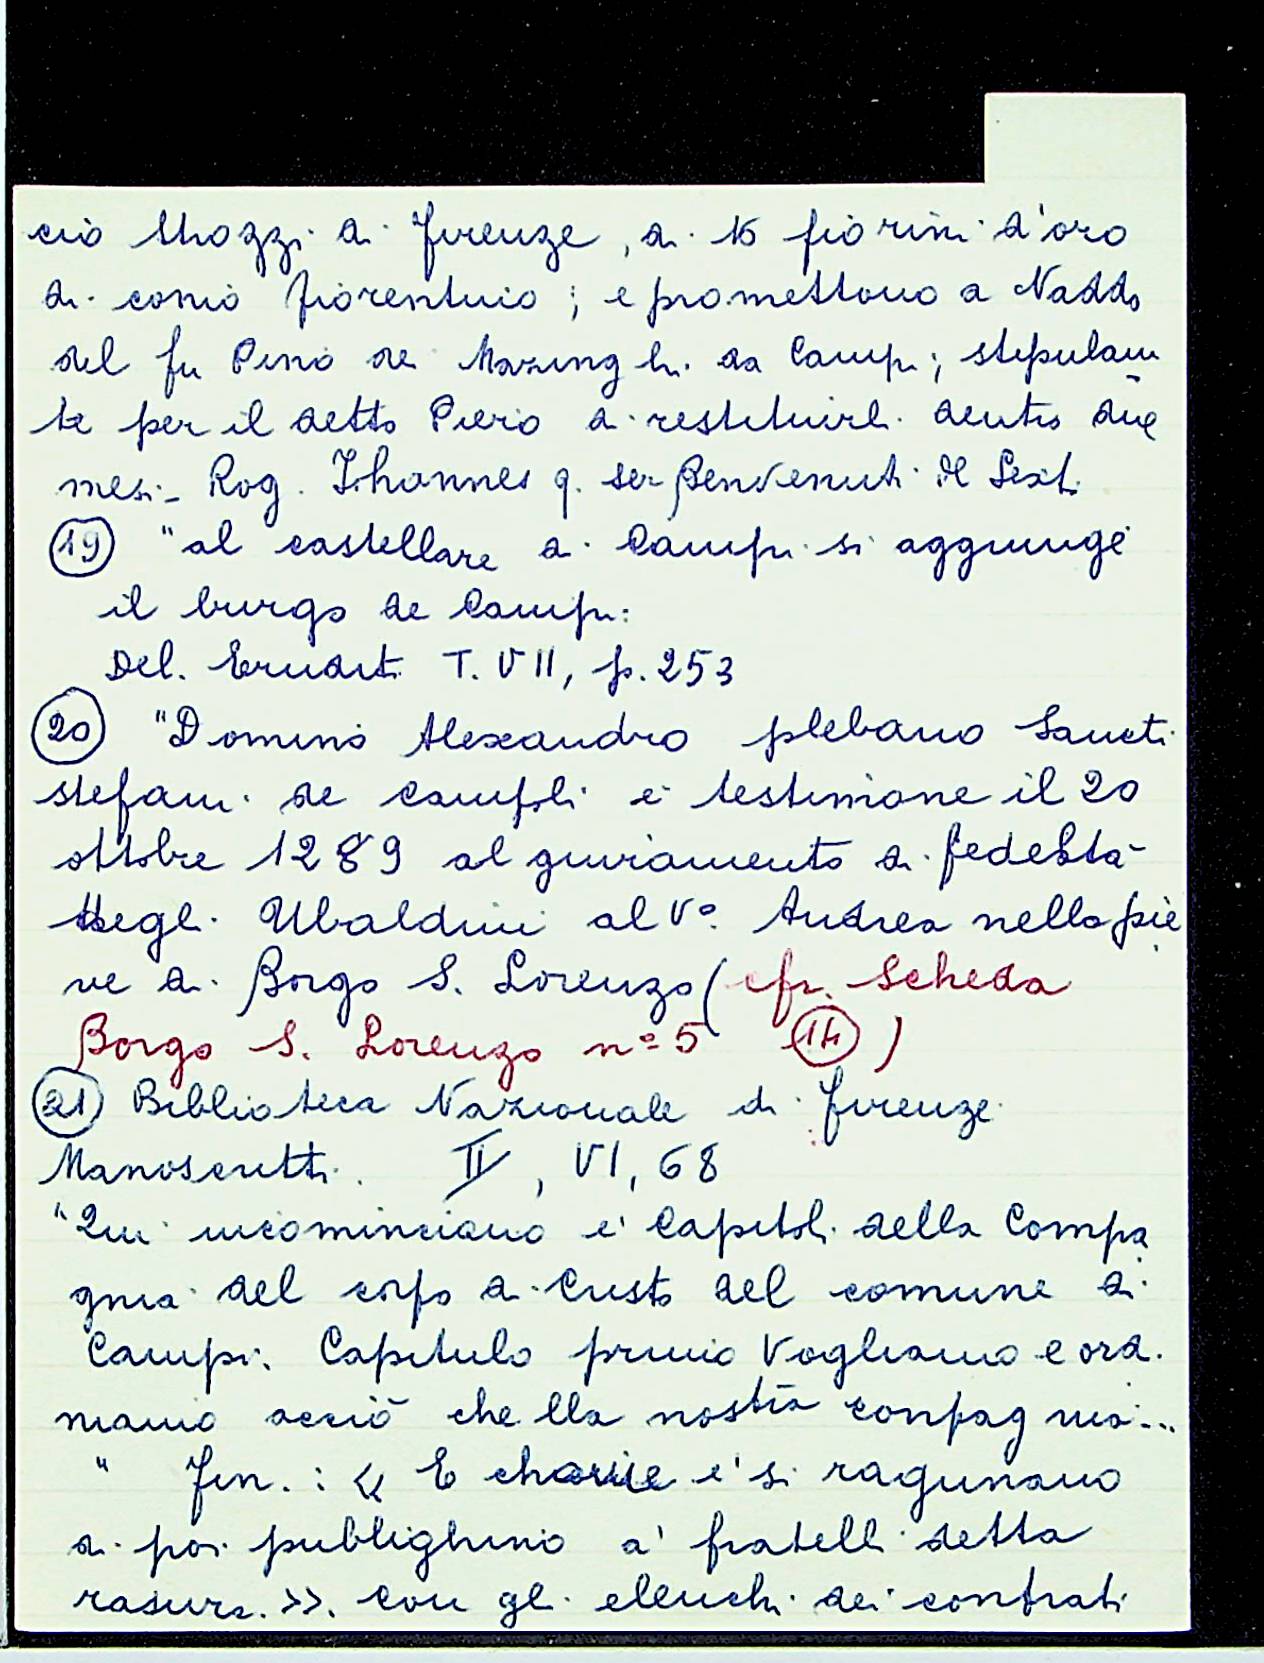 cio Mozzi di Firenze, di 16 fiorini d'oro
di conio fiorentino; e promettono a Naddo
del fu Pino de Mazinghi da Campi; stipulan
te per il detto Piero di restituirli dentro due
mesi - Rog. Ihoannes q. ser Benvenuti de Sexti
(19) "al castellare di Campi si aggiunge
il burgo de Campi:
Del. Erudit. T. VII, p. 253
(20) "Domino Alexandro plebano Sancti
Stefani de Campoli è testimone il 20
ottobre 1289 al giuramento di fedeltà
degli Ubaldini al Vo. Andrea nella pie
ve di Borgo S. Lorenzo (cfr. Scheda
Borgo S. Lorenzo nº 5 (14))
(21) Biblioteca Nazionale di Firenze
Manoscritti. II, VI, 68
"Qui incominciano e' Capitoli della Compa
gnia del corpo di Cristo del comune di
Campi. Capitulo primo Vogliamo e ordi
niamo acciò che lla nostra conpagnia...
" Fin.: << E che e' si ragunano
di poi publighino a' fratelli detta
rasura. >>. Con gli elenchi dei confrati